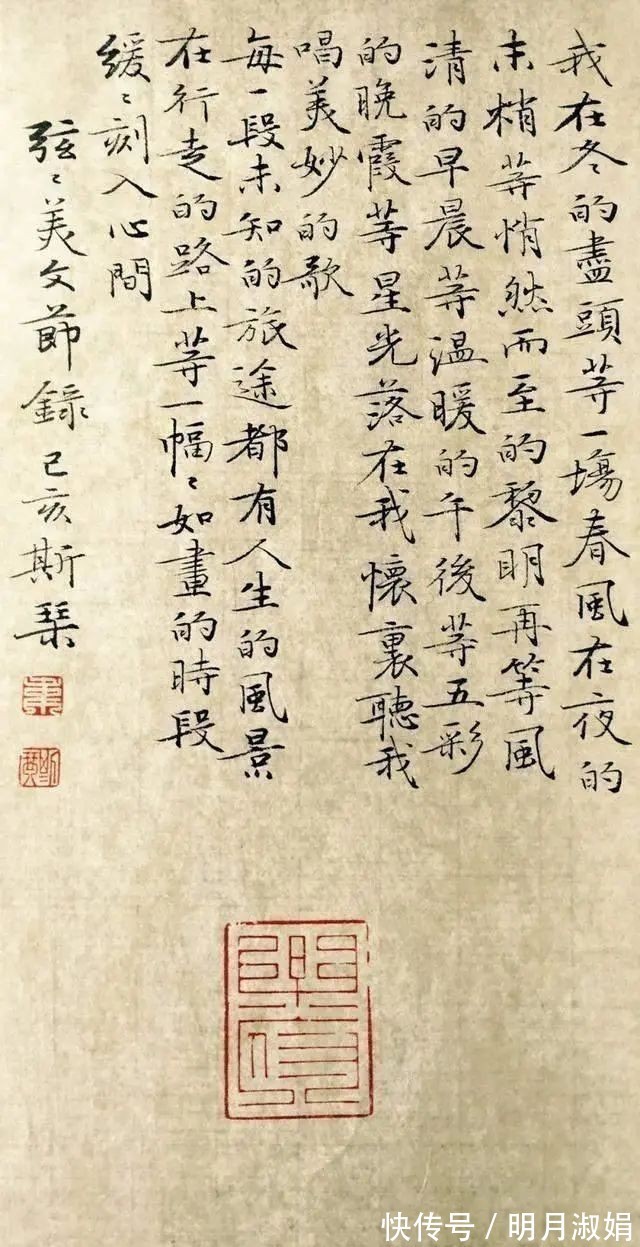 我在冬的盡頭等一塲春風在夜的
末梢等悄然而至的黎明再等風
清的早晨等温暖的午後等五彩
的晚霞等星光落在我懷裏聽我
唱美妙的歌
每一段未知的旅途都有人生的風景
在行走的路上等一幅〻如畫的時段
緩〻刻入心間
弦〻美文節錄己亥斯琹
快传号/明月淑娟